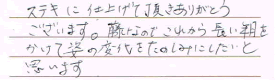 ステキに仕上げて頂きありがとう
ございます。藤なのでこれから長い年月を
かけて姿の変化をたのしみにしたいと
思います